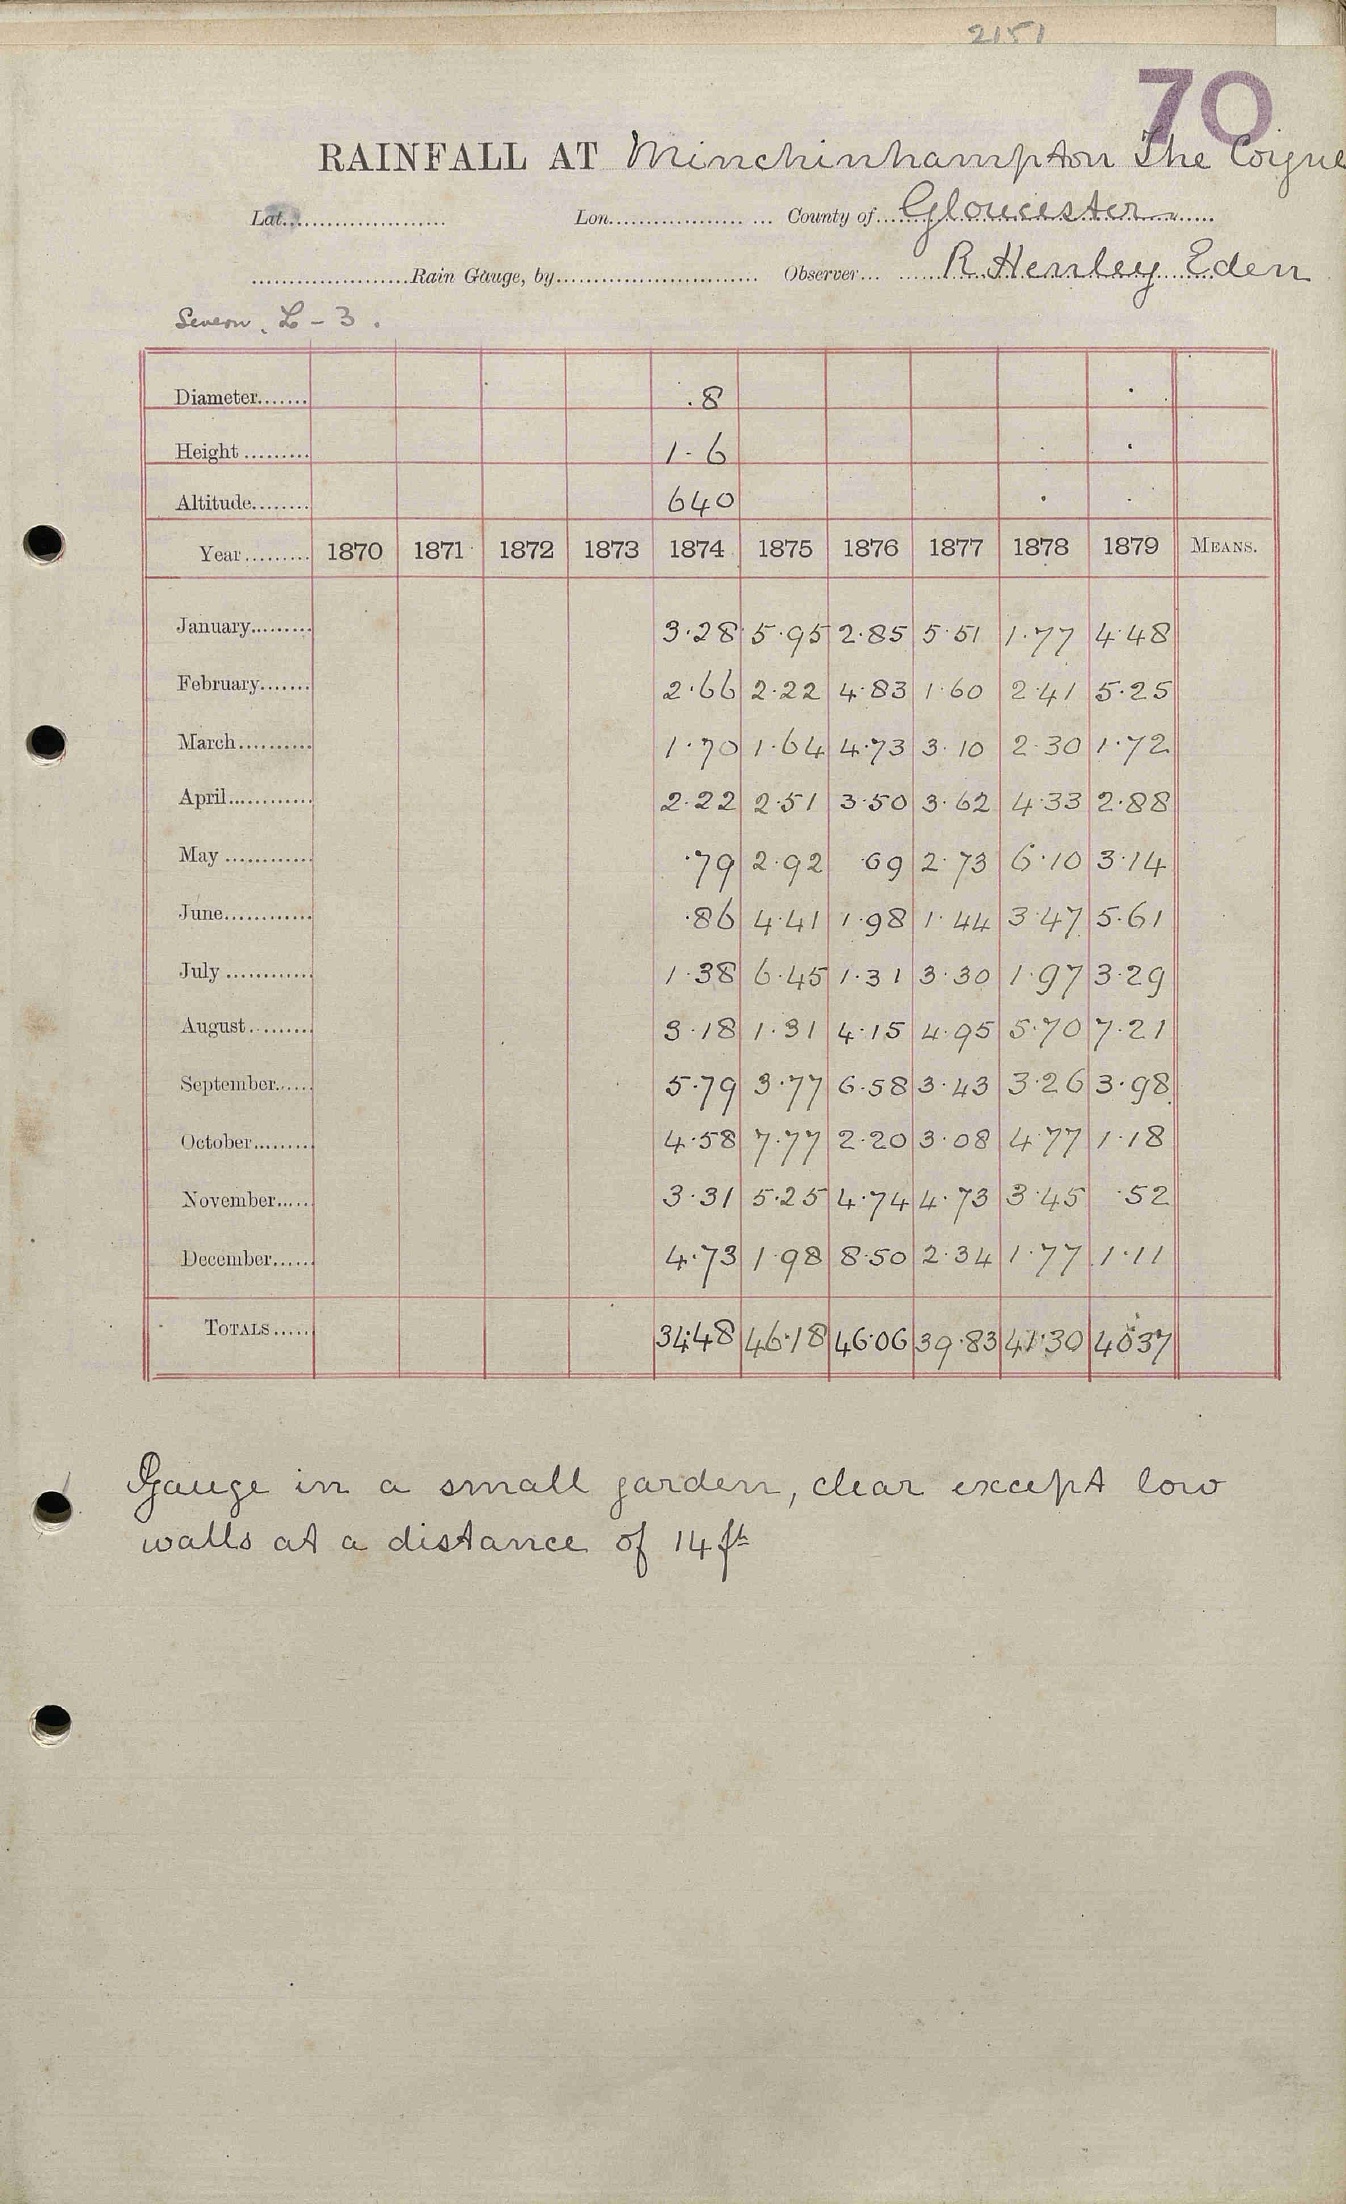 2151
70
RAINFALL AT Minchinhampton The Coigne
Lat. Lon. County of Gloucester
Rain Gauge, by Observer R Henley Eden
Severn. L - 3.
Diameter .8
Height 1-6
Altitude 640
Year 1870 1871 1872 1873 1874 1875 1876 1877 1878 1879 MEANS.
January 3.28 5.95 2.85 5.51 1.77 4.48
February 2.66 2.22 4.83 1.60 2.41 5.25
March 1.70 1.64 4.73 3.10 2.30 1.72
April 2.22 2.51 3.50 3.62 4.33 2.88
May .79 2.92 .69 2.73 6.10 3.14
June .86 4.41 1.98 1.44 3.47 5.61
July 1.38 6.45 1.31 3.30 1.97 3.29
August 3.18 1.31 4.15 4.95 5.70 7.21
September 5.79 3.77 6.58 3.43 3.26 3.98
October 4.58 7.77 2.20 3.08 4.77 1.18
November 3.31 5.25 4.74 4.73 3.45 .52
December 4.73 1.98 8.50 2.34 1.77 1.11
TOTALS 34.48 46.18 46.06 39.83 41.30 40.37
Gauge in a small garden, clear except low
walls at a distance of 14 ft